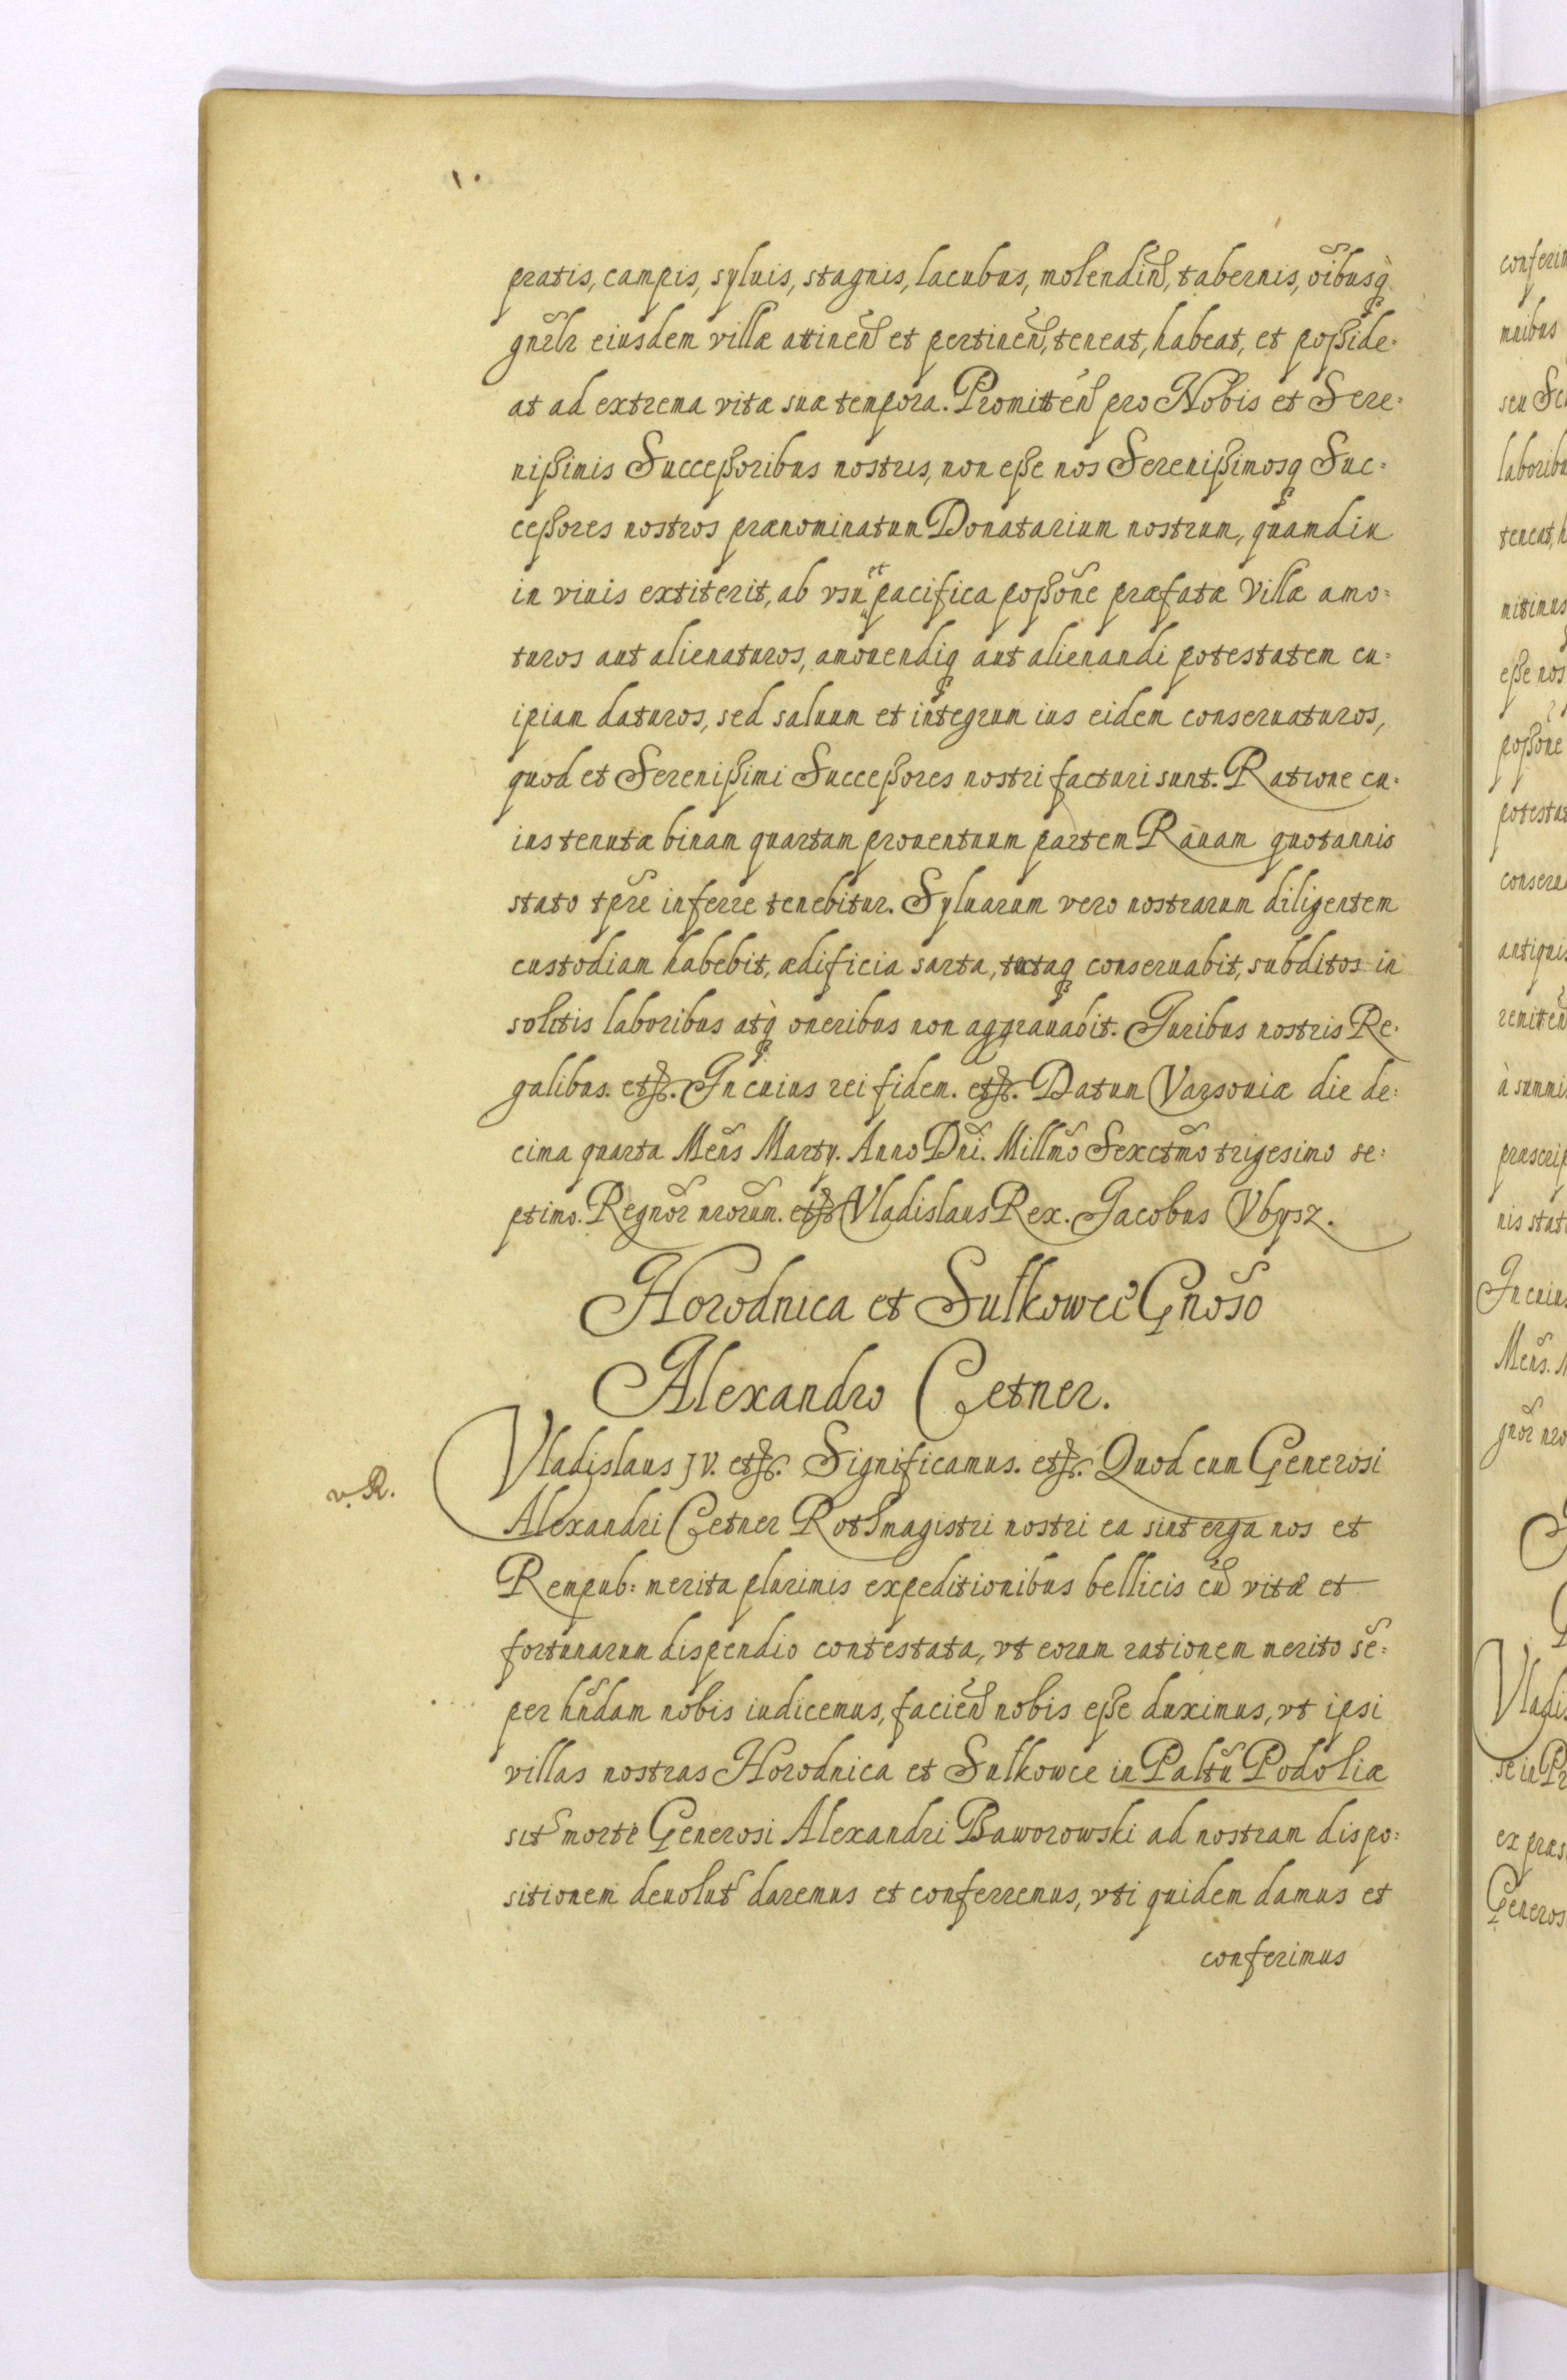 pratis, campis, syluis, stagnis, lacubus, molendin, tabernis, oibusq̀
gnrlr eiusdem villæ attinen et pertinen, teneat, habeat, et poßide=
at ad extrema vitæ suæ tempora. Promitten pro Nobis et Sere=
nißimis Succeßoribus nostris, non eße nos Serenißimosq Suc=
ceßores nostros prænominatum Donatarium nostrum, quamdiu
in viuis extiterit, ab vsu et pacifica poßone præfatæ Villæ amo=
turos aut alienaturos, amouendiq aut alienandi potestatem cu=
ipiam daturos, sed saluum et integrum ius eidem conseruaturos,
quod et Serenißimi Succeßores nostri facturi sunt. Ratione cu=
ius tenutæ binam quartam prouentuum partem Rauam quotannis
stato tpre inferre tenebitur. Syluarum vero nostrarum diligentem
custodiam habebit, ædificia sarta, tectaq conseruabit, subditos in
solitis laboribus atq̀ oneribus non aggrauabit. Juribus nostris Re=
galibus. etc. In cuius rei fidem. etc. Datum Varsouiæ die de=
cima quarta Mens Marty. Anno Dni. Millmo Sexctmo trigesimo se=
ptimo. Regnor nrorum. etc Vladislaus Rex. Jacobus Vbysz.
Horodnica et Sulkowce Gnoso
Alexandro Cetner.
v. R.
Vladislaus IV. etc. Significamus. etc. Quod cum Generosi
Alexandri Cetner Rothmagistri nostri ea sint erga nos et
Rempub: merita plurimis expeditionibus bellicis cu vitæ et
fortunarum dispendio contestata, vt eorum rationem merito se=
per hndam nobis iudicemus, facien nobis eße duximus, vt ipsi
villas nostras Horodnica et Sulkowce in Paltu Podoliæ
sit morte Generosi Alexandri Baworowski ad nostram dispo=
sitionem deuolut daremus et conferremus, vti quidem damus et
conferimus